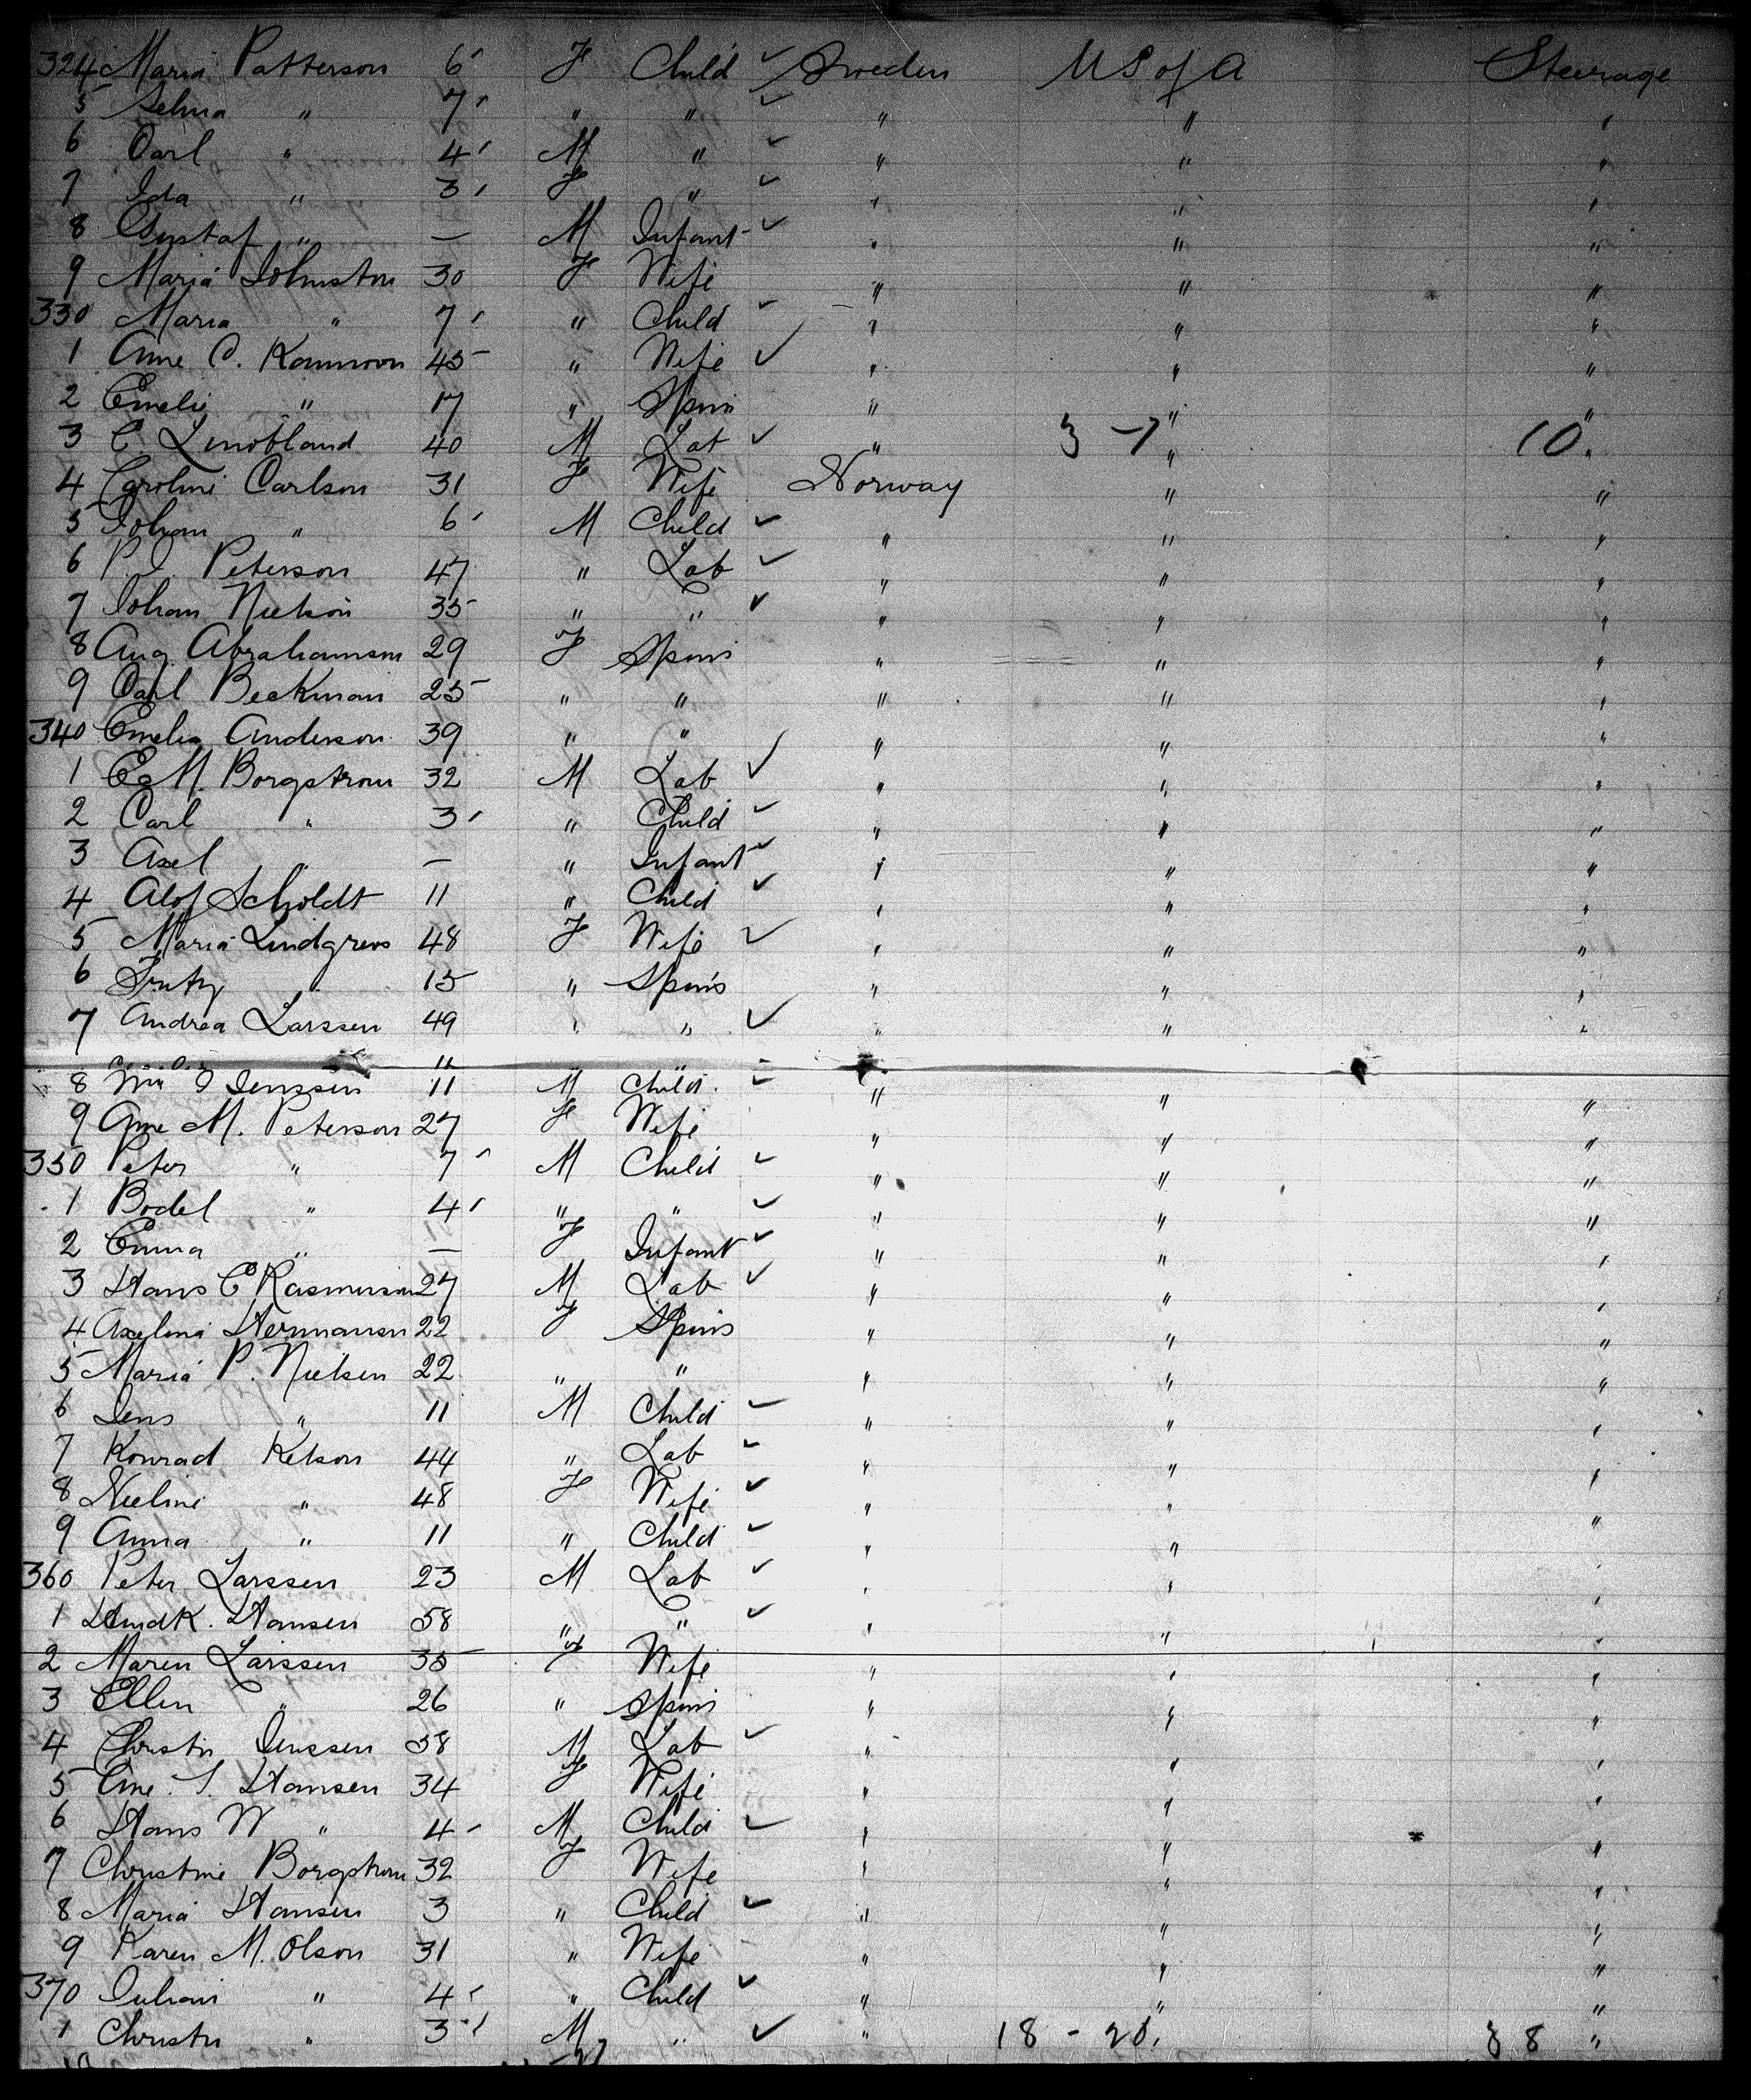 324 Maria Patterson 6 F Child ✓ Sweden U S of A Steerage
5 Selma " 7 " " ✓ " " "
6 Carl " 4 M " ✓ " " "
7 Ida " 3 F " ✓ " " "
8 Gustaf " — M Infant ✓ " " "
9 Maria Johnston 30 F Wife " " "
330 Maria " 7 " Child ✓ " " "
1 Ane C. 45 " Wife ✓ " " "
2 Emelie " 17 " Spins " " "
3 C 40 M Lab ✓ " 3 - 7 " 10 "
4 Caroline Carlson 31 F Wife Norway " "
5 Johan " 6 M Child ✓ " " "
6 P. J. Peterson 47 " Lab ✓ " " "
7 Johan Nielson 35 " " ✓ " " "
8 Aug Abrahamson 29 F Spins " " "
9 Carl Beckman 25 " " " " "
340 Emelia Anderson 39 " " " " "
1 M. Borgstrom 32 M Lab ✓ " " "
2 Carl " 3 " Child ✓ " " "
3 Axel " — " Infant ✓ " " "
4 Alof Scholdt 11 " Child ✓ " " "
5 Maria Lindgrens 48 F Wife ✓ " " "
6 " 15 " Spins " " "
7 Andrea Larssen 49 " " ✓ " " "
8 Wm J Jenssen 11 M Child ✓ " " "
9 Ane M. Peterson 27 F Wife " " "
350 Peter " 7 M Child ✓ " " "
1 Bodel " 4 " " ✓ " " "
2 Emma " — F Infant ✓ " " "
3 Hans C Rasmusson 27 M Lab ✓ " " "
4 Axelina Hermansen 22 F Spins " " "
5 Maria P. Nielsen 22 " " " " "
6 Jens " 11 M Child ✓ " " "
7 Konrad Kelson 44 " Lab ✓ " " "
8 Nieline " 48 F Wife ✓ " " "
9 Anna " 11 " Child ✓ " " "
360 Peter Larssen 23 M Lab ✓ " " "
1 Hendk. Hansen 58 " " ✓ " " "
2 Maren Larssen 35 F Wife " " "
3 Ellen " 26 " Spins " " "
4 Christn Jenssen 58 M Lab ✓ " " "
5 Ane S. Hansen 34 F Wife " " "
6 Hans W " 4 M Child ✓ " " "
7 Christine Borgstrom 32 F Wife " " "
8 Maria Hansen 3 " Child ✓ " " "
9 Karen M. Olson 31 " Wife " " "
370 Julian " 4 " Child ✓ " " "
1 Christn " 3 M " ✓ " 18 - 20 " 38 "